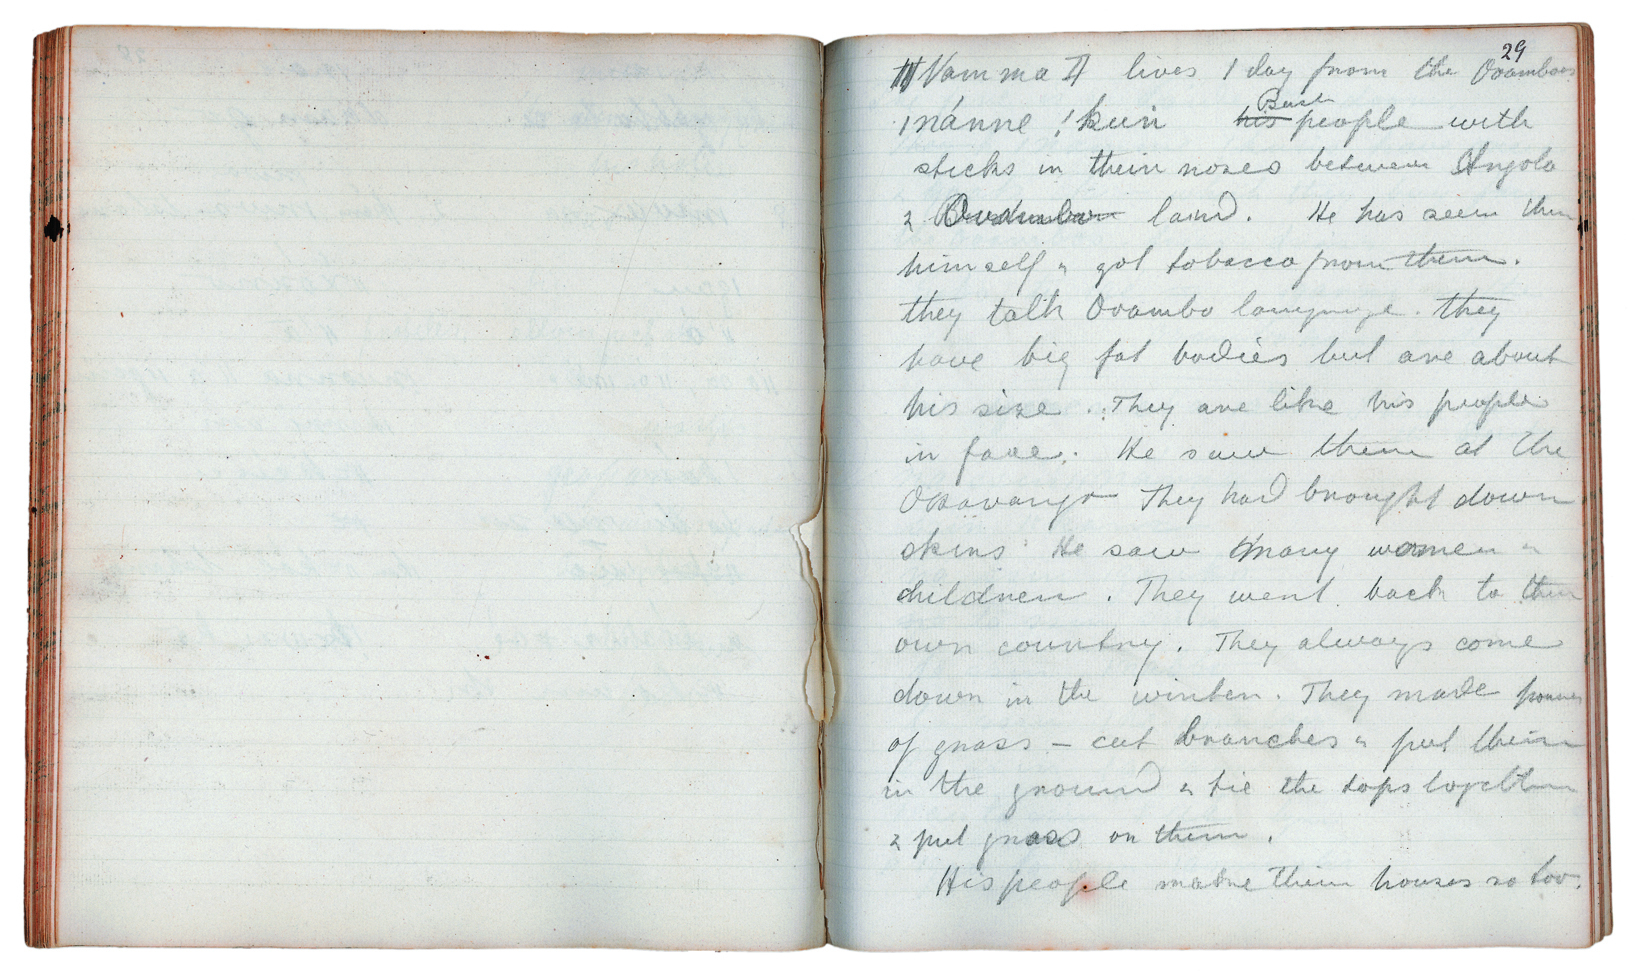 29
Vamma II lives 1 day from the Ovamboes
!nánne !kuin ~~his~~ Bush people with
sticks in their noses between Angola
& land. He has seen them
himself & got tobacco from them.
they talk Ovambo language. They
have big fat bodies but are about
his size. They are like his people
in face. He saw them at the
Okavango They had brought down
skins He saw many women &
children. They went back to their
own country. They always come
down in the winter. They made houses
of grass – cut branches & put them
in the ground & tie the tops together
& put grass on them.
His people make their houses so too.